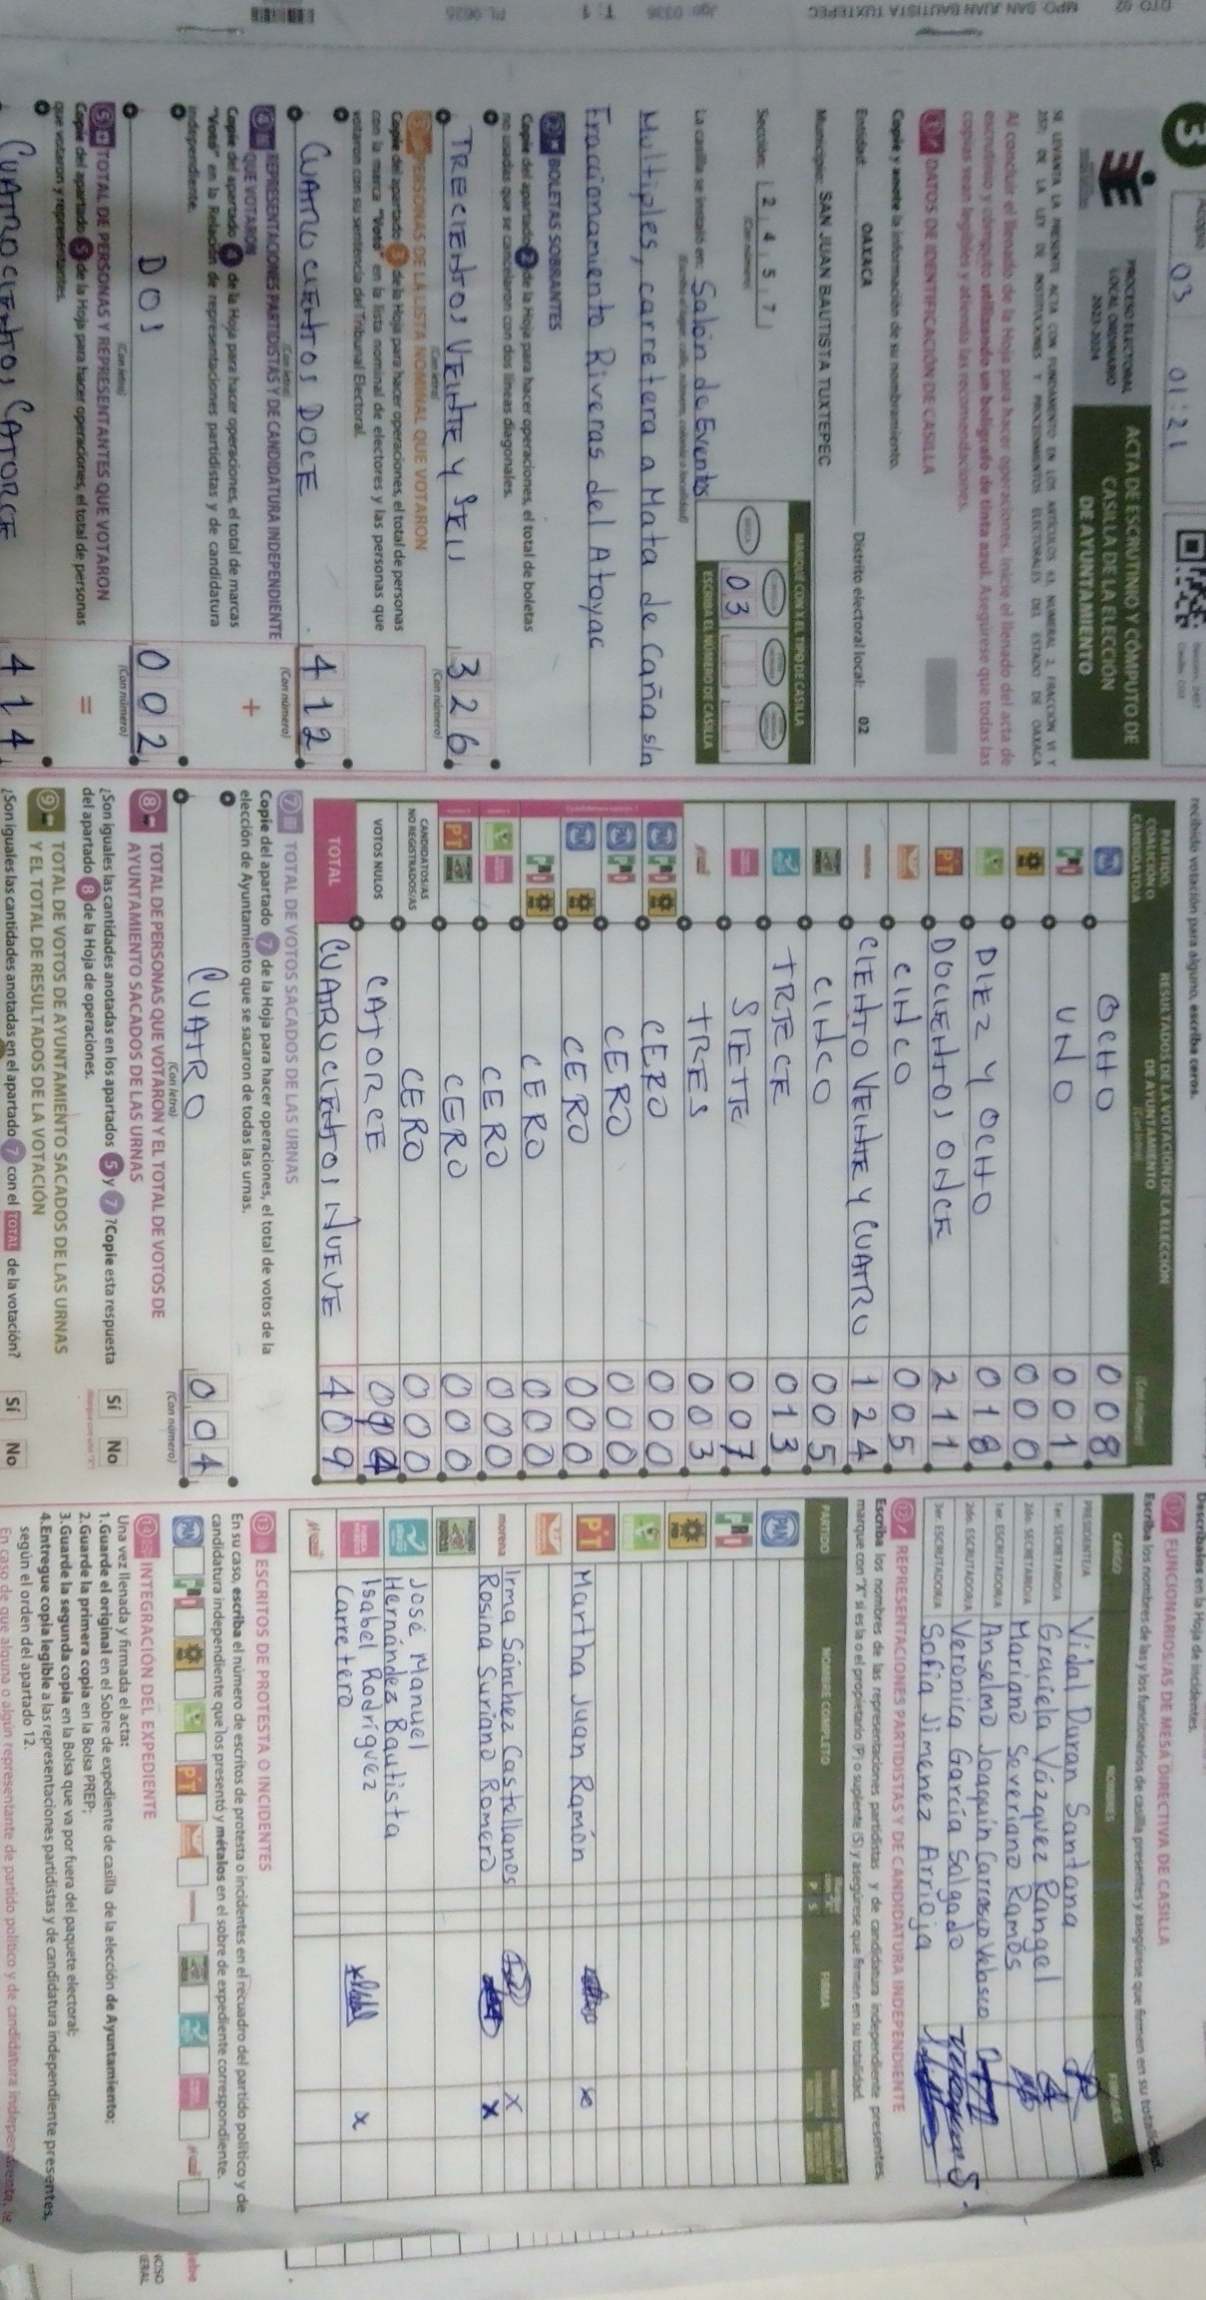 3
Acopio
03 01:21
PROCESO ELECTORAL
LOCAL ORDINARIO
2023-2024
ACTA DE ESCRUTINIO Y CÓMPUTO DE
CASILLA DE LA ELECCIÓN
DE AYUNTAMIENTO
SE LEVANTA LA PRESENTE ACTA CON FUNDAMENTO EN LOS ARTÍCULOS 63, NUMERAL 2, FRACCIÓN VI Y
257; DE LA LEY DE INSTITUCIONES Y PROCEDIMIENTOS ELECTORALES DEL ESTADO DE OAXACA
Al concluir el llenado de la Hoja para hacer operaciones, inicie el llenado del acta de
escrutinio y cómputo utilizando un bolígrafo de tinta azul. Asegúrese que todas las
copias sean legibles y atienda las recomendaciones.
1 DATOS DE IDENTIFICACIÓN DE CASILLA
Copie y anote la información de su nombramiento.
Entidad: OAXACA Distrito electoral local: 02
Municipio: SAN JUAN BAUTISTA TUXTEPEC
Sección: 2 4 5 7
(Con número)
MARQUE CON EL TIPO DE CASILLA
03
ESCRIBA EL NÚMERO DE CASILLA
La casilla se instaló en: Salón de Eventos
Multiples, carretera a Mata de Caña s/n
Fraccionamiento Riveras del Atoyac
2 BOLETAS SOBRANTES
Copie del apartado 2 de la Hoja para hacer operaciones, el total de boletas
no usadas que se cancelaron con dos líneas diagonales.
TRECIENTOS VEINTE Y SEIS 326
(Con letra) (Con número)
3 PERSONAS DE LA LISTA NOMINAL QUE VOTARON
Copie del apartado 3 de la Hoja para hacer operaciones, el total de personas
con la marca "Votó" en la lista nominal de electores y las personas que
votaron con su sentencia del Tribunal Electoral.
CUATROCIENTOS DOCE 412
(Con letra) (Con número)
4 REPRESENTACIONES PARTIDISTAS Y DE CANDIDATURA INDEPENDIENTE
QUE VOTARON
Copie del apartado 4 de la Hoja para hacer operaciones, el total de marcas
"Votó" en la Relación de representaciones partidistas y de candidatura
independiente.
+
DOS 002
(Con letra) (Con número)
5 TOTAL DE PERSONAS Y REPRESENTANTES QUE VOTARON
Copie del apartado 5 de la Hoja para hacer operaciones, el total de personas
que votaron y representantes.
=
CUATROCIENTOS CATORCE 414
recibido votación para alguno, escriba ceros.
PARTIDO,
COALICIÓN O
CANDIDATO/A
RESULTADOS DE LA VOTACIÓN DE LA ELECCIÓN
DE AYUNTAMIENTO
(Con letra) (Con número)
PAN OCHO 008
PRI UNO 001
000
DIEZ Y OCHO 018
PT DOCIENTOS ONCE 211
CINCO 005
morena CIENTO VEINTE Y CUATRO 124
CINCO 005
TRECE 013
SIETE 007
TRES 003
CERO 000
CERO 000
CERO 000
CERO 000
CERO 000
CERO 000
CANDIDATOS/AS
NO REGISTRADOS/AS CERO 000
VOTOS NULOS CATORCE 014
TOTAL CUATROCIENTOS NUEVE 409
7 TOTAL DE VOTOS SACADOS DE LAS URNAS
Copie del apartado 7 de la Hoja para hacer operaciones, el total de votos de la
elección de Ayuntamiento que se sacaron de todas las urnas.
CUATRO 004
(Con letra) (Con número)
8 TOTAL DE PERSONAS QUE VOTARON Y EL TOTAL DE VOTOS DE
AYUNTAMIENTO SACADOS DE LAS URNAS
¿Son iguales las cantidades anotadas en los apartados 5 y 7 ? Copie esta respuesta Sí No
del apartado 8 de la Hoja de operaciones.
9 TOTAL DE VOTOS DE AYUNTAMIENTO SACADOS DE LAS URNAS
Y EL TOTAL DE RESULTADOS DE LA VOTACIÓN
¿Son iguales las cantidades anotadas en el apartado 7 con el TOTAL de la votación? Sí No
Descríbalos en la Hoja de incidentes.
FUNCIONARIOS/AS DE MESA DIRECTIVA DE CASILLA
Escriba los nombres de las y los funcionarios de casilla presentes y asegúrese que firmen en su totalidad.
CARGO NOMBRES FIRMAS
PRESIDENTE/A Vidal Duran Santana
1er. SECRETARIO/A Graciela Vázquez Rangel
2do. SECRETARIO/A Mariano Soveriano Ramos
1er. ESCRUTADOR/A Anselmo Joaquín Carrasco Velasco
2do. ESCRUTADOR/A Veronica García Salgado
3er. ESCRUTADOR/A Sofia Jimenez Arrioja
12 REPRESENTACIONES PARTIDISTAS Y DE CANDIDATURA INDEPENDIENTE
Escriba los nombres de las representaciones partidistas y de candidatura independiente presentes,
marque con "X" si es la o el propietario (P) o suplente (S) y asegúrese que firmen en su totalidad.
PARTIDO NOMBRE COMPLETO P S FIRMA
PAN
PRI
PT Martha Juan Ramón
morena Irma Sánchez Castellanos X
Rosina Suriano Romero X
José Manuel
Hernández Bautista
Isabel Rodríguez
Carretero x
13 ESCRITOS DE PROTESTA O INCIDENTES
En su caso, escriba el número de escritos de protesta o incidentes en el recuadro del partido político y de
candidatura independiente que los presentó y métalos en el sobre de expediente correspondiente.
14 INTEGRACIÓN DEL EXPEDIENTE
Una vez llenada y firmada el acta:
1. Guarde el original en el Sobre de expediente de casilla de la elección de Ayuntamiento;
2. Guarde la primera copia en la Bolsa PREP;
3. Guarde la segunda copia en la Bolsa que va por fuera del paquete electoral;
4. Entregue copia legible a las representaciones partidistas y de candidatura independiente presentes,
según el orden del apartado 12.
En caso de que alguna o algún representante de partido político y de candidatura independiente, le
DTO 02 MPO SAN JUAN BAUTISTA TUXTEPEC